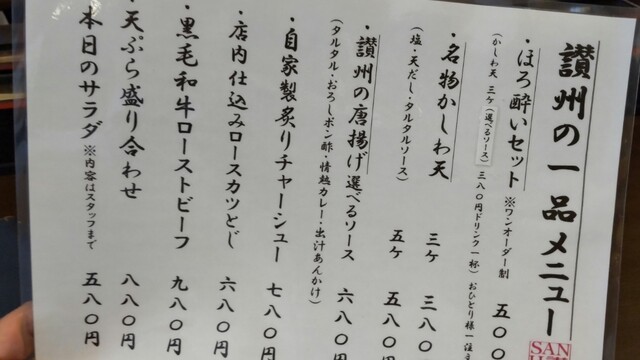 讃州の一品メニュー
・ほろ酔いセット ※ワンオーダー制 五〇〇
(かしわ天 三ケ(選べるソース) 三八〇円ドリンク一杯) おひとり様一注
・名物かしわ天 三ケ 三八〇
(塩・天だし・タルタルソース) 五ケ 五八〇
・讃州の唐揚げ選べるソース 六八〇円
(タルタル・おろしポン酢・情熱カレー・出汁あんかけ)
・自家製炙りチャーシュー 七八〇円
・店内仕込みロースカツとじ 六八〇円
・黒毛和牛ローストビーフ 九八〇円
・天ぷら盛り合わせ 八八〇円
本日のサラダ ※内容はスタッフまで 五八〇円
SAN